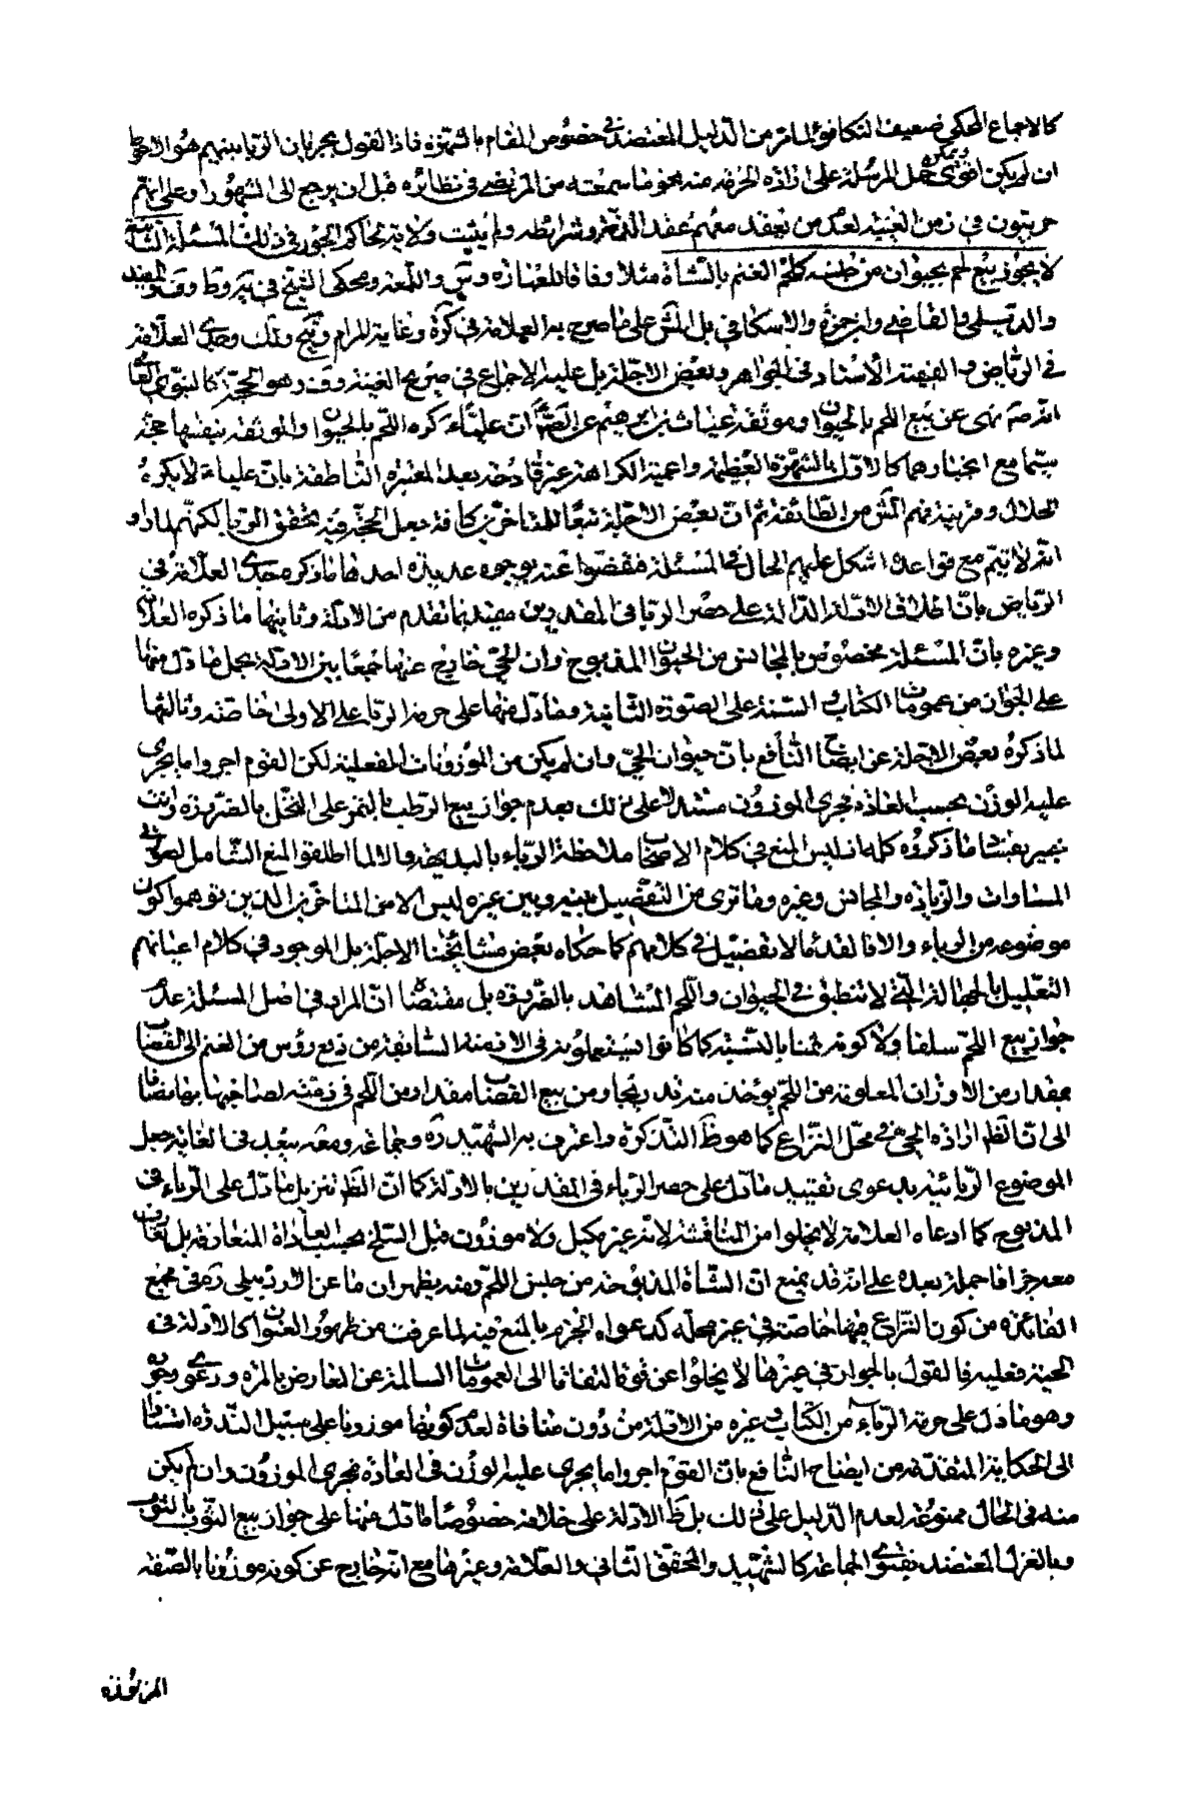 كالاجماع المحكي ضعيف التكافؤ لما مر من الدليل المعتضد في خصوص المقام بالشهرة فاذا القول بجريان الربا بينهم هو الاحوط
ان لم يكن اقوى ويمكن حمل المرسلة على ارادة الحرمة منه بنحو ما سمعته من المرتضى في نظائره قبل ان يرجع الى المشهور وعلى انهم
حربيون في زمن الغيبة لعدم من يعقد معهم عقد الذمة وشرائطه ولم يثبت ولاية لحاكم الجور في ذلك المسئلة السابعة
لا يجوز بيع لحم بحيوان من جنسه كلحم الغنم بالشاة مثلا وفاقا للعبارة وس واللمعة ومحكي الشيخ في يه وط وف والمفيد
والديلمي والقاضي وابن حمزة والاسكافي بل المش على ما صرح به العلامة في كرة وغاية المرام وقيح ولك وجدي العلامة
في الرياض والفقيه الاستاد في الجواهر وبعض الاجلة بل عليه الاجماع في صريح الغنية وف وهو الحجة كالنبوي العام
انه ص نهى عن بيع اللحم بالحيوان وموثقة غياث بن ابرهيم عن الص ان عليا ع كره اللحم بالحيوان والموثقة بنفسها حجة
سيما مع انجبارهما كالاول بالشهرة العظيمة واعمية الكراهة غير قادحة بعد المعتبرة الناطقة بان عليا ع لا يكره
الحلال وقرينية فهم المش من الطائفة ثم ان بعض الاجلة تبعا للمتاخرين كافة جعل الحجة فيه تحقق الربا لكنهم لما راو
انه لا يتم مع قواعده اشكل عليهم الحال في المسئلة فقصوا عنه بوجوه عديدة احدها ما ذكره جدي العلامة في
الرياض بان اطلاق الادلة الدالة على حصر الربا في المقدرين مقيد بما تقدم من الادلة وثانيها ما ذكره العلامة
وغيره بان المسئلة مخصوص بالمجانس من الحيوان المذبوح وان الحي خارج عنها جمعا بين الادلة بحمل ما دل منها
على الجواز من عمومات الكتاب والسنة على الصورة الثانية وما دل منها على حرمة الربا على الاولى خاصة وثالثها
لما ذكره بعض الاجلة عن ايضاح النافع بان حيوان الحي وان لم يكن من الموزونات الفعلية لكن القوم اجروا ما يجري
عليه الوزن بحسب العادة مجرى الموزون مستدلا على ذلك بعدم جواز بيع الرطب بالتمر على النخل بالضرورة وانت
خبير بفساد ما ذكروه كله اذ ليس المنع في كلام الاصحاب ملاحظة الرباء بالبديهة والا لما اطلقوا المنع الشامل لصورتي
المساوات والزيادة والمجانس وغيره وما ترى من التفصيل بينه وبين غيره ليس الا من المتاخرين الذين توهموا كون
موضوعه من الرباء والا فالقدماء لا تفصيل في كلامهم كما حكاه بعض مشايخنا الاجلة بل الموجود في كلام اعيانهم
التعليل بالجهالة التي لا تنطبق في الحيوان واللحم المشاهد بالضرورة بل مقتضاه ان المراد في اصل المسئلة عدم
جواز بيع اللحم سلفا ولا كونه ثمنا بالنسبة كما كانوا يستعملونه في الازمنة السابقة من دفع رؤس من الغنم الى القصاب
بمقدار من الاوزان المعلومة من اللحم يؤخذ منه تدريجا ومن بيع القصاب مقدار من اللحم في ذمته لصاحبها بها مضافا
الى ان الظ ارادة الحي في محل النزاع كما هو ظ التذكرة واعترف به الشهيد ره وجماعة ومعه يبعد في الغاية جعل
الموضوع الربائية بدعوى تقييد ما دل على حصر الرباء في المقدرين بالادلة كما ان الظ تنزيل ما دل على الرباء في
المذبوح كما ادعاه العلامة لا يخلوا من المناقشة لانه غير مكيل ولا موزون قبل السلخ بحسب العادة المتعارفة بل يتعارف
معه جزافا جملة بعده على انه قد يمنع ان الشاة المذبوحة من جنس اللحم ومنه يظهر ان ما عن الاردبيلي ره في مجمع
الفائدة من كون النزاع فيها خاصة في غير محله كدعواه الجزم بالمنع فيه لما عرفت من ظهور العنوان كالادلة في
الحية فعليه فالقول بالجواز في غيرها لا يخلوا عن قوة التفاتا الى العمومات السالمة عن المعارض بالمرة ودعوى وجوده
وهو ما دل على حرمة الرباء من الكتاب وغيره من الادلة من دون منافاة لعدم كونها موزونا على سبيل الندرة استنادا
الى الحكاية المتقدمة من ايضاح النافع بان القوم اجروا ما يجري عليه الوزن في العادة مجرى الموزون وان لم يكن
منه في الحال ممنوعة لعدم الدليل على ذلك بل ظ الادلة على خلافه خصوصا ما دل منها على جواز بيع الثوب بالثوب
وبالغزل المعتضد بفتوى الجماعة كالشهيد والمحقق الثاني والعلامة وغيرها مع انه خارج عن كونه موزونا بالصفة
المزبورة